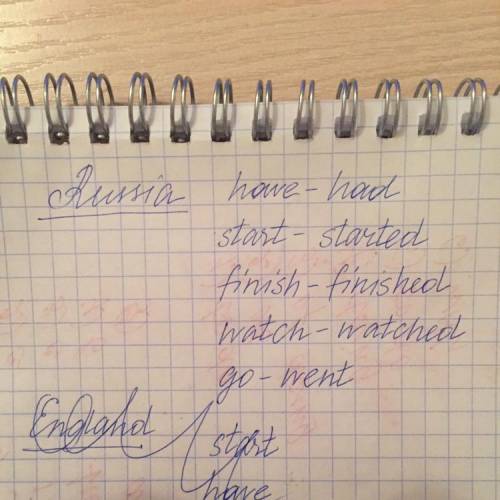 Russia have - had
start - started
finish - finished
watch - watched
go - went
England
start
have